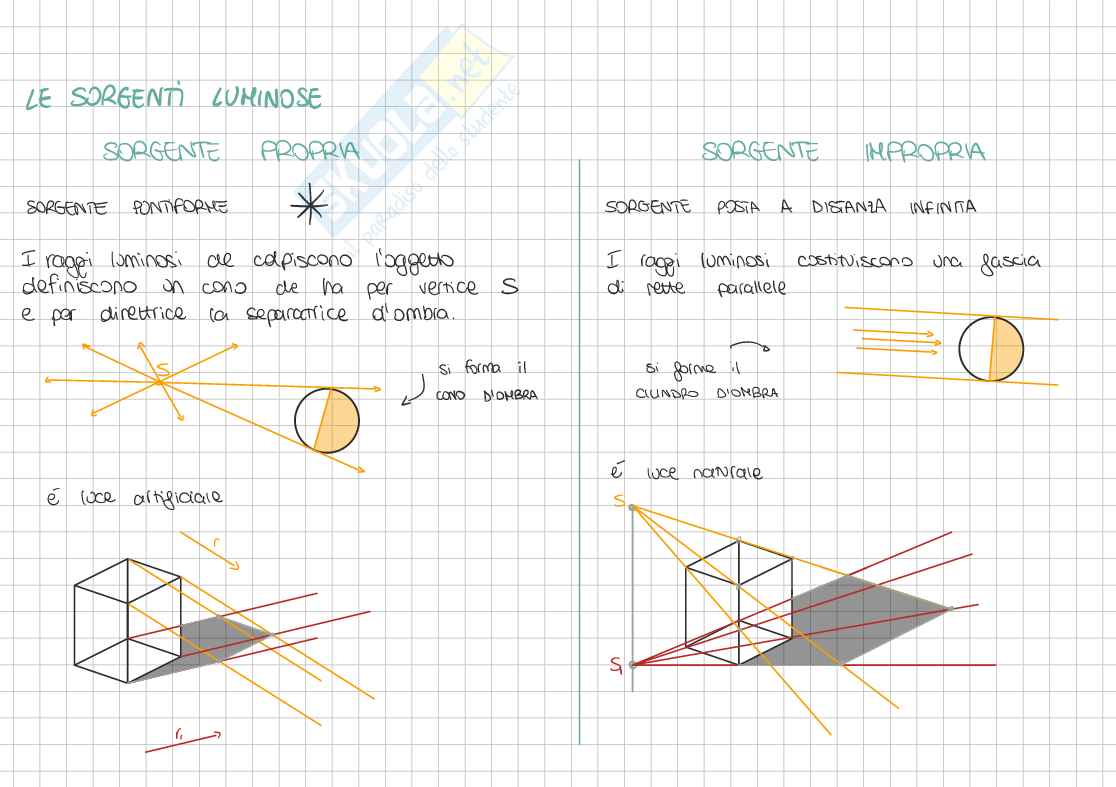 LE SORGENTI LUMINOSE
SORGENTE PROPRIA
SORGENTE PONTIFORME
I raggi luminosi che colpiscono l'oggetto
definiscono un cono che ha per vertice S
e per direttrice la separatrice d'ombra.
S
si forma il
CONO D'OMBRA
é luce artificiale
r
r₁
SORGENTE IMPROPRIA
SORGENTE POSTA A DISTANZA INFINITA
I raggi luminosi costituiscono una fascia
di rette parallele
si forma il
CILINDRO D'OMBRA
é luce naturale
S
S₁
SKUOLA.net
il paradiso dello studente